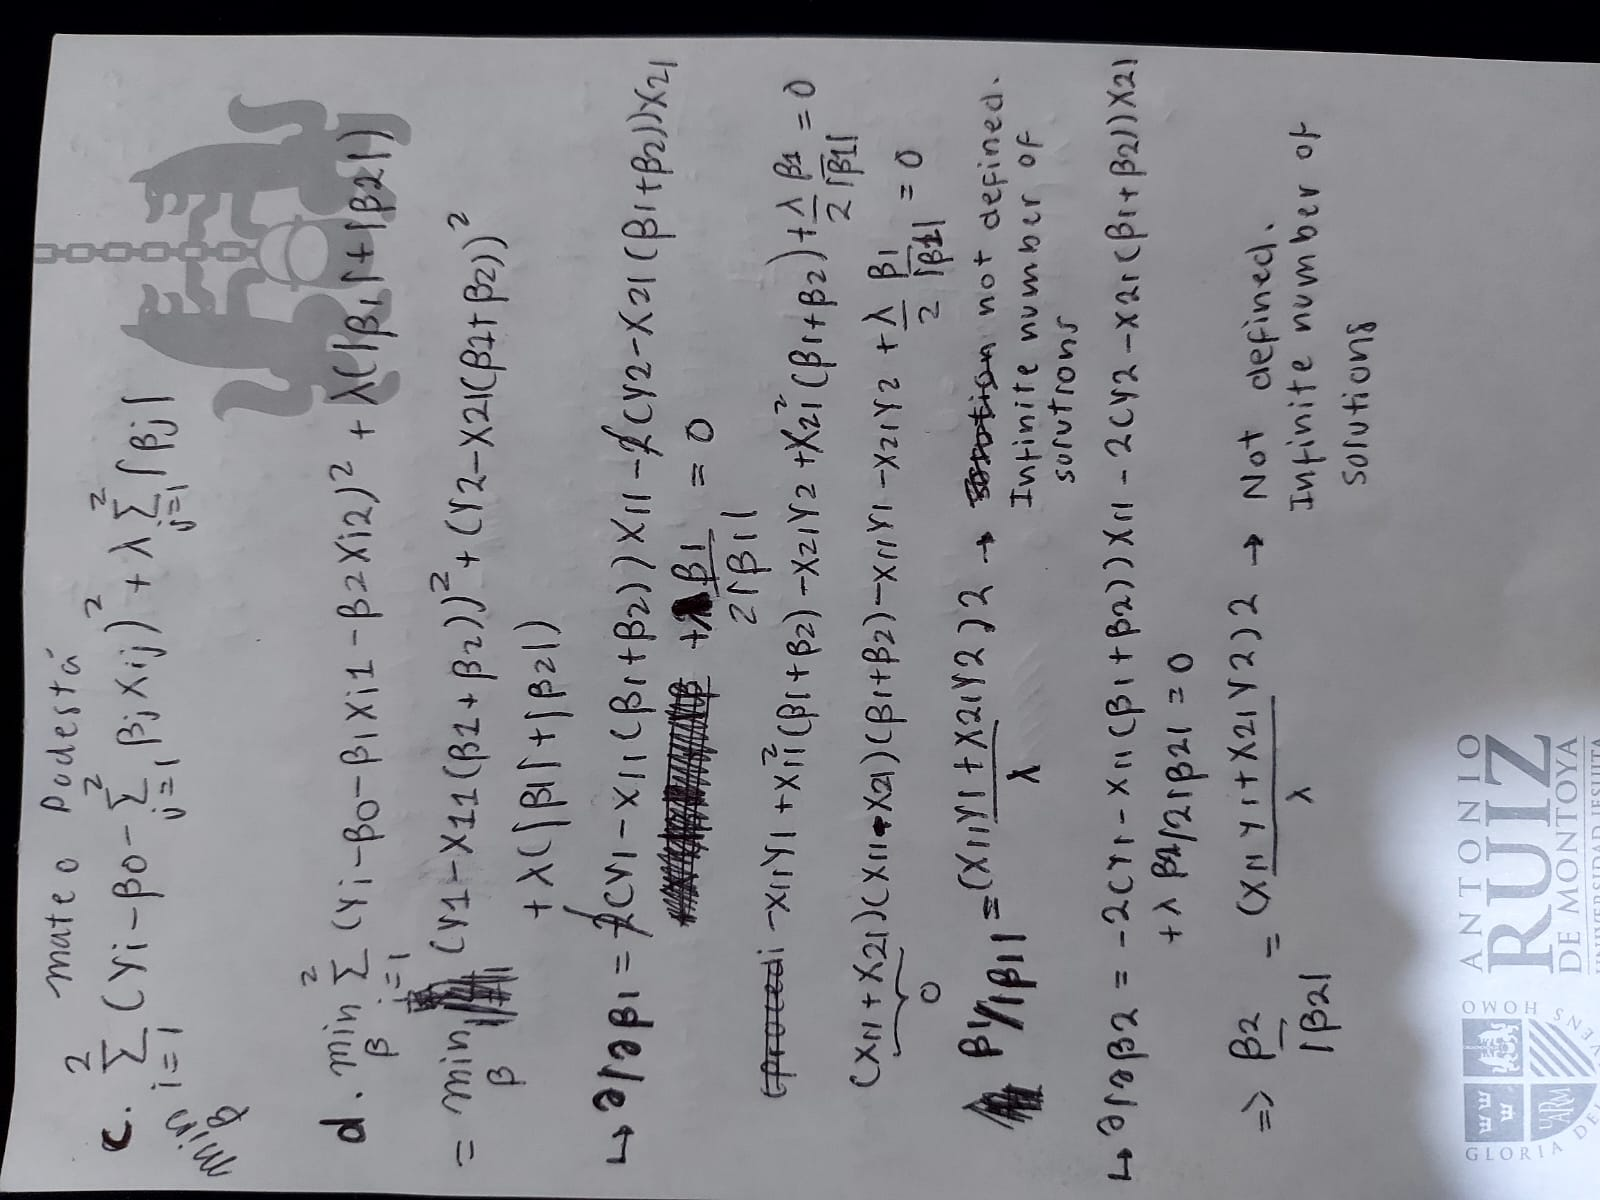 mateo Podestá
c. min β 2∑i=1 (yi-β0-2∑j=1 βj xij)² + λ 2∑j=1 |βj|
d. min β 2∑i=1 (yi-β0-β1xi1-β2xi2)² + λ(|β1|+|β2|)
= min β (y1-x11(β1+β2))² + (y2-x21(β1+β2))²
+ λ(|β1|+|β2|)
↳ ∂/∂β1 = 2(y1-x11(β1+β2))x11-2(y2-x21(β1+β2))x21
+λ β1/2|β1| = 0
-x11y1+x11²(β1+β2)-x21y2+x21²(β1+β2)+λ/2 β1/|β1| = 0
(x11+x21)(x11+x21)(β1+β2)-x11y1-x21y2+λ/2 β1/|β1| = 0
0
β1/|β1| = (x11y1+x21y2)2/λ → not defined.
Infinite number of
solutions
↳ ∂/∂β2 = -2(y1-x11(β1+β2))x11-2(y2-x21(β1+β2))x21
+λ β2/2|β2| = 0
=> β2/|β2| = (x11y1+x21y2)2/λ → Not defined.
Infinite number of
solutions
ANTONIO
RUIZ
DE MONTOYA
UNIVERSIDAD JESUITA
HOMO
UARM
GLORIA DE